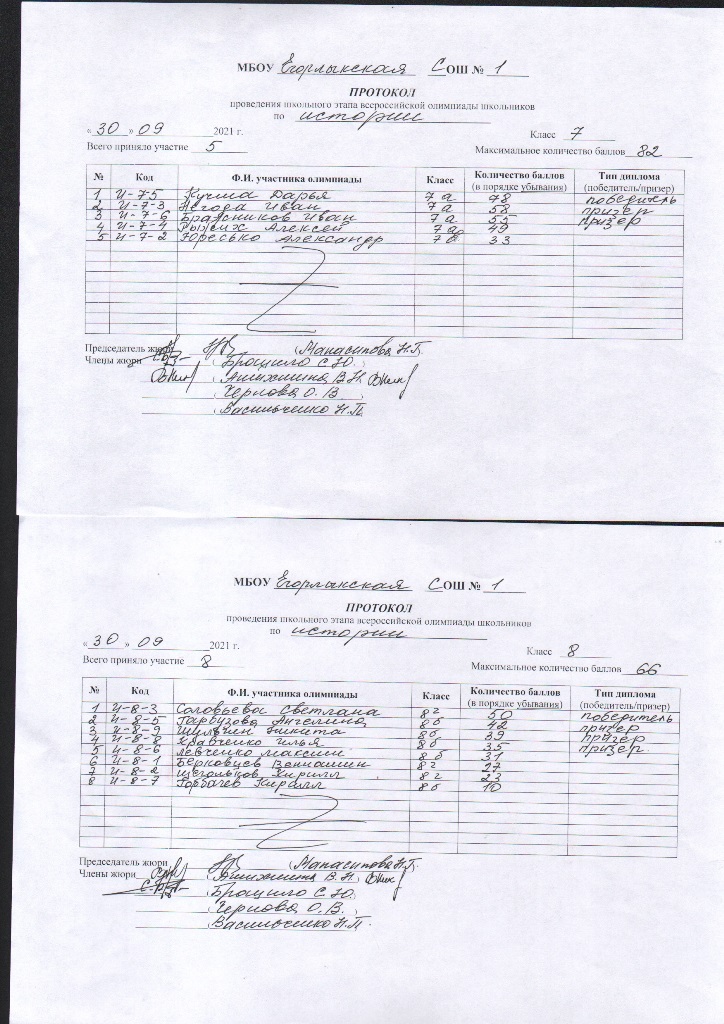 МБОУ Егорлыкская СОШ № 1
ПРОТОКОЛ
проведения школьного этапа всероссийской олимпиады школьников
по истории
«30» 09 2021 г.
Класс 7
Всего приняло участие 5
Максимальное количество баллов 82
№ Код Ф.И. участника олимпиады Класс Количество баллов (в порядке убывания) Тип диплома (победитель/призер)
1 И-7-5 Кучма Дарья 7а 78 победитель
2 И-7-3 Негода Иван 7а 58 призер
3 И-7-6 Бражников Иван 7а 55 призер
4 И-7-4 Рыжих Алексей 7а 49
5 И-7-2 Юресько Александр 7б 33
Председатель жюри Манасипова Н.Г.
Члены жюри Брацило С.Ю.
Анихимина В.Н.
Чернова О.В
Васильченко Н.П.
МБОУ Егорлыкская СОШ № 1
ПРОТОКОЛ
проведения школьного этапа всероссийской олимпиады школьников
по истории
«30» 09 2021 г.
Класс 8
Всего приняло участие 8
Максимальное количество баллов 66
№ Код Ф.И. участника олимпиады Класс Количество баллов (в порядке убывания) Тип диплома (победитель/призер)
1 И-8-3 Соловьева Светлана 8г 50 победитель
2 И-8-5 Гарбузова Ангелина 8б 42 призер
3 И-8-9 Шульгин Никита 8б 39 призер
4 И-8-8 Кравченко Илья 8б 35 призер.
5 И-8-6 Левченко Максим 8б 31
6 И-8-1 Берковцев Вениамин 8г 27
7 И-8-2 Щегольков Кирилл 8г 23
8 И-8-7 Горбачев Кирилл 8б 10
Председатель жюри Манасипова Н.Г.
Члены жюри Анихимина В.Н.
Брацило С.Ю.
Чернова О.В.
Васильченко Н.П.